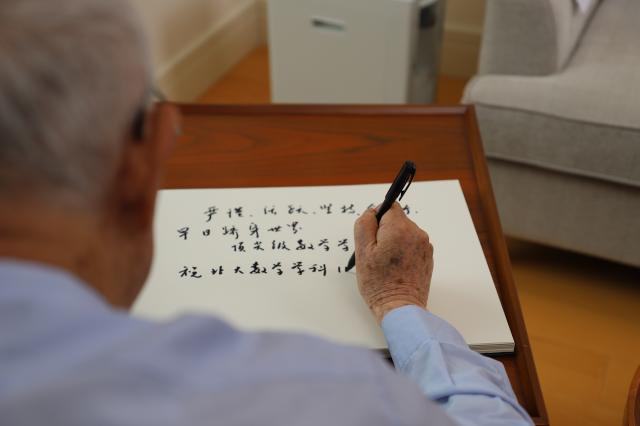 严谨、活跃、坚持
早日跻身世界
顶尖级数学学
祝北大数学学科1